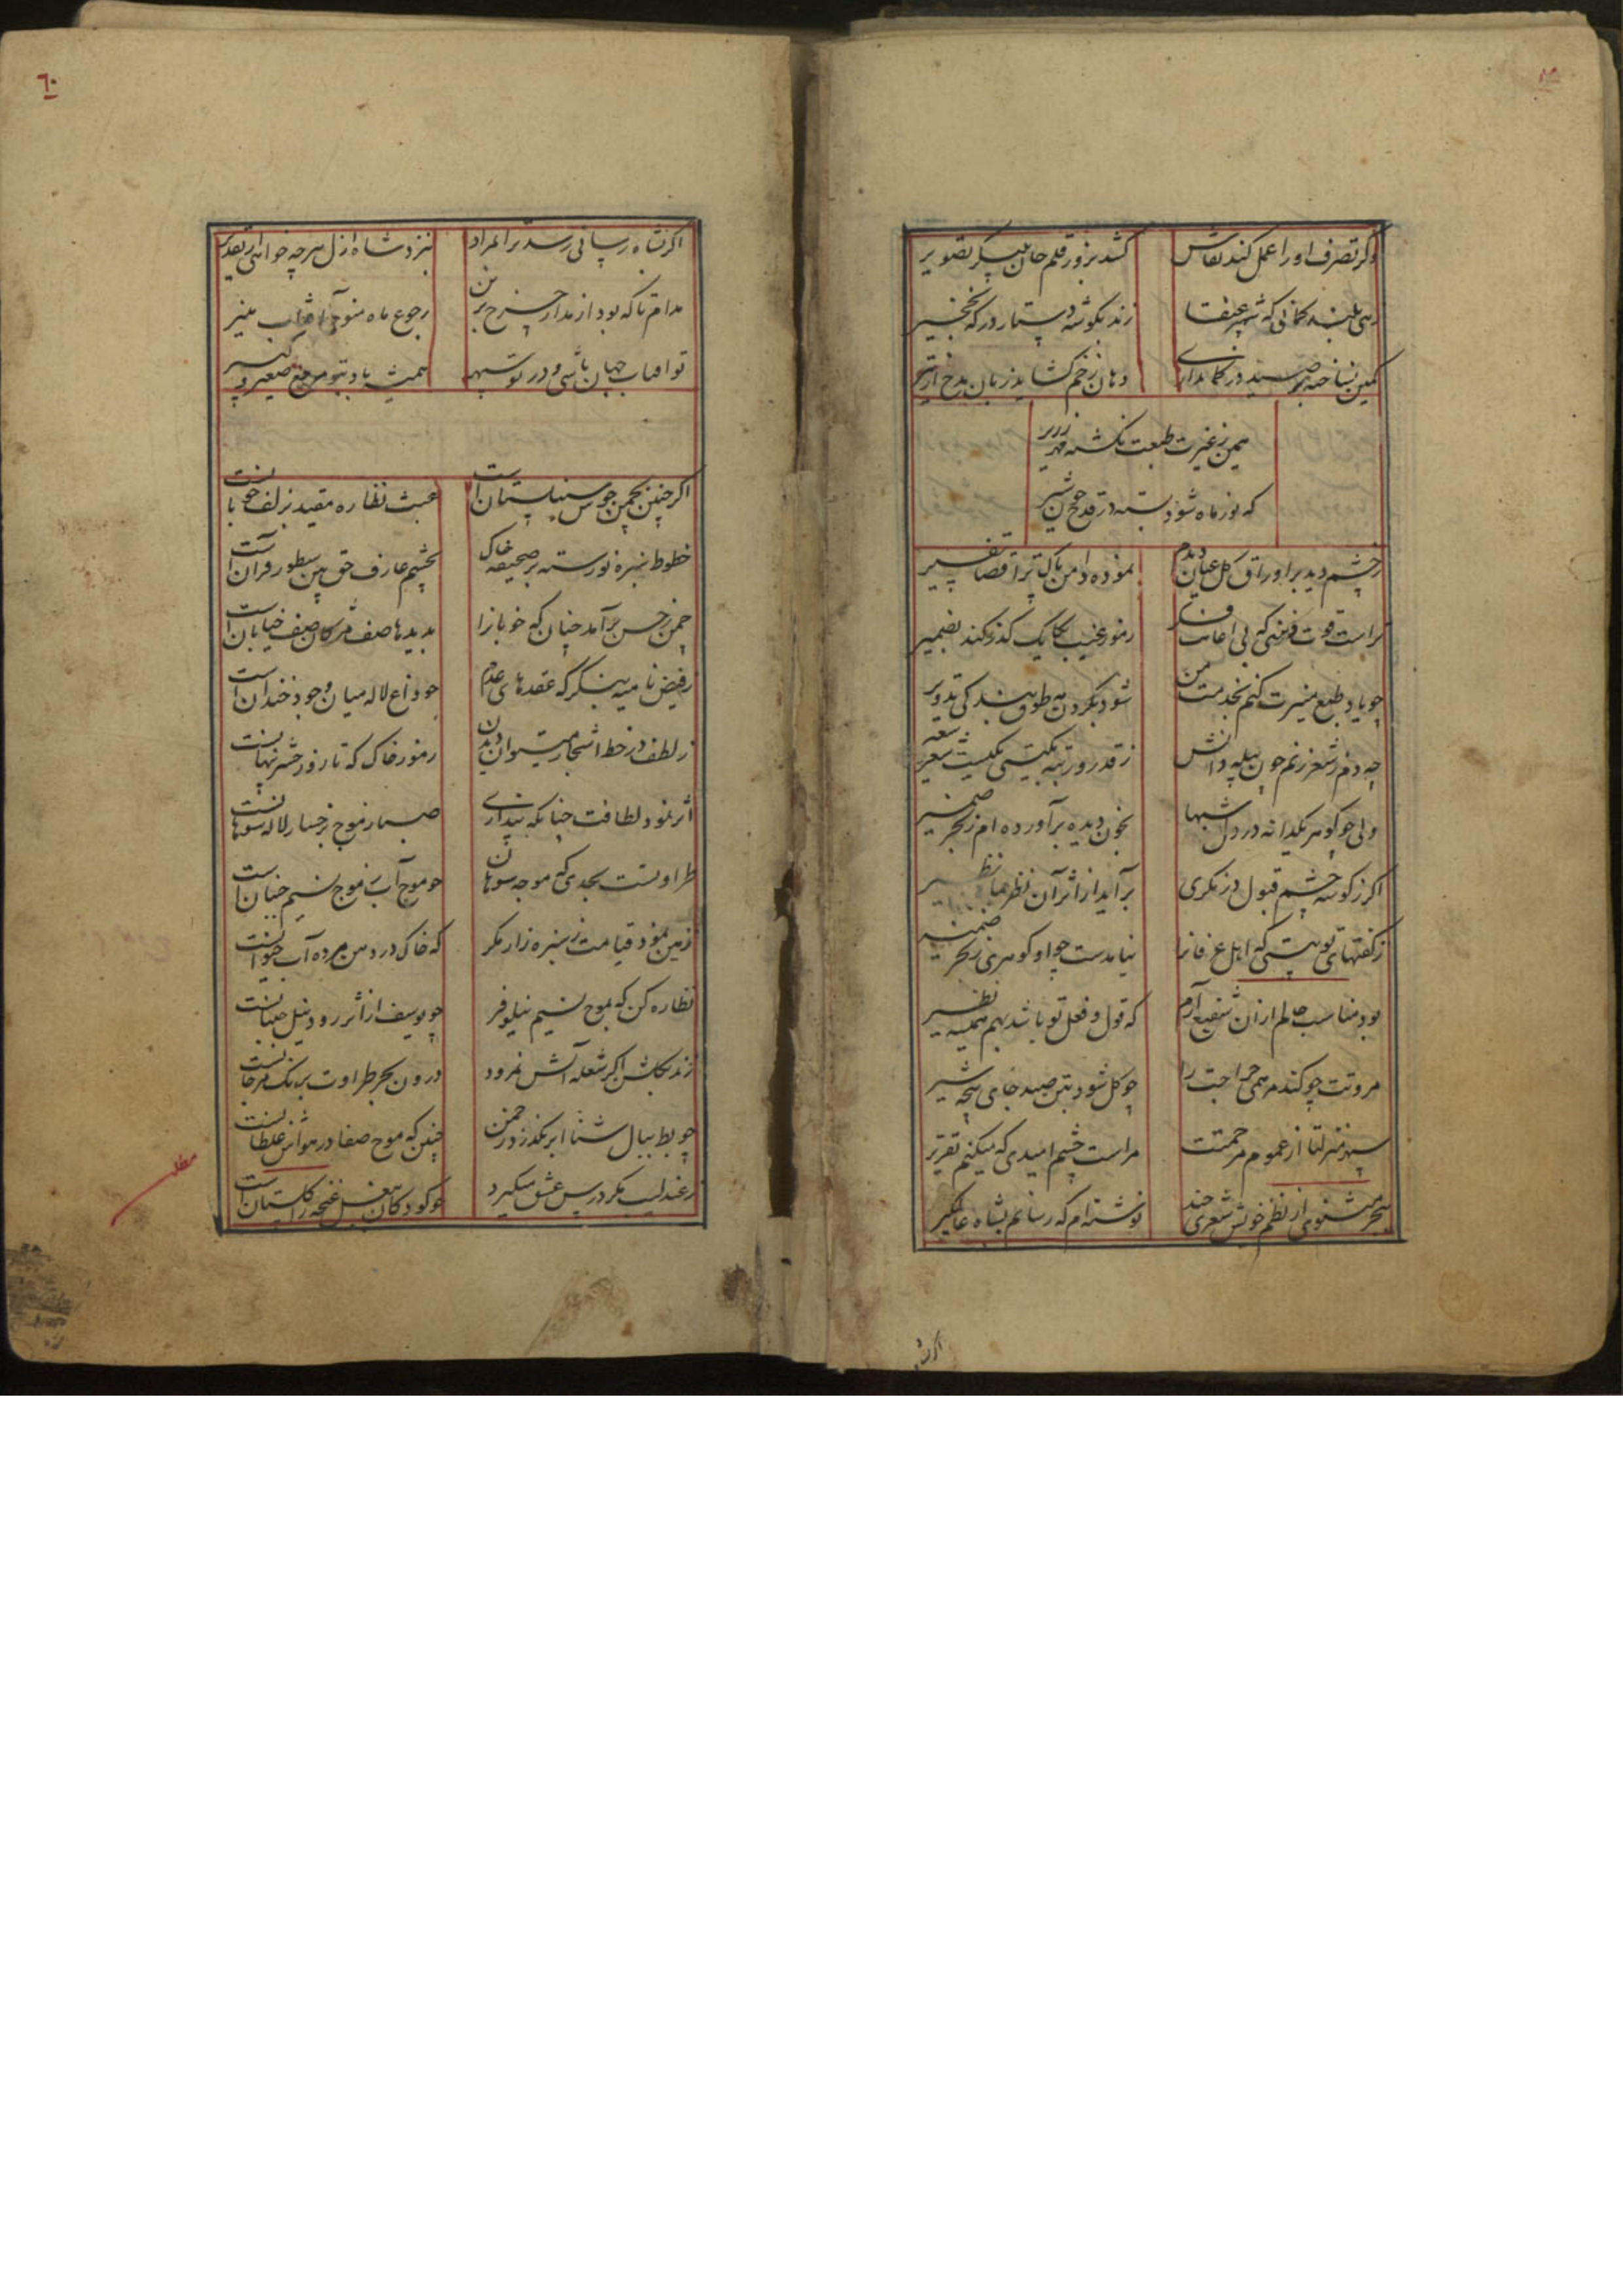 وکر تصرف او را عمل کند نقاش
کشد بزور قلم جان به پیکر تصویر
زهی بلند کمانی که شهپر عنقا
زند بکوشه دستار در که نخچیر
دهان زخم کشاید زبان بمدح از تیر
همین ز غیرت طبعت نکشته مهر
که نور ماه شود بسته در قدح چون شیر
ز چشم دید بر اوراق کل عیان دیدم
نموده دامن پاک ترا قضا تفسیر
تراست قوت فهمی که بی اعانت فکر
رموز غیب بکایک کند بضمیر
چو یاد طبع منیرت کنم بخدمت من
شود بکردن مه طوق بندکی تدویر
چه دم ز شعر زنم چون به پله دانش
ز قدر و رتبه بکیتی یکیست شعر و شعیر
ولی چو کوهر یکدانه در دل شبها
بخون دیده برآورده ام ز بحر ضمیر
اکر ز کوشه چشم قبول در نکری
برآید از اثر آن نظر نظیر
ز کفتهای تو بیتی که اهل عرفانرا
نیامدست چو او کوهری ز بحر ضمیر
بود مناسب حالم از آن شفیع آرم
که قول و فعل تو باشد بهم نظیر
مروتت چو کند مرهمی جراحت را
چو کل شود بتن صید جای پنجه شیر
سپهر منزلتا از عموم مرحمتت
مراست چشم امیدی که میکنم تقریر
بحر مثنوی از نظم خویش شعری چند
نوشته ام که رسانم بشاه عالمکیر
اکر
٦٠
اکر بشاه رسانی رسد مرا بمراد
بنزد شاه ازل هر چه خواهی از تقدیر
مدام تا که بود از مدار چرخ برین
رجوع ماه نو آفتاب منیر
تو آفتاب جهان باشی و در تو سپهر
همیشه باد بتو مرجع صغیر و کبیر
اکر چنین بچمن جوش سنبلستان است
عبث نظاره مقید بزلف خوبانست
خطوط سبزه نورسته بر صحیفه خاک
بچشم عارف حق بین سطور قرآن است
چمن ز حسن برآمد چنان که خوبانرا
بدیدها صف مژکان صف خیابان است
ز فیض نامیه بنکر که عقدهای عدم
چو داغ لاله میان وجود خندان است
ز لطف در خط اشجار میتوان دیدن
رموز خاک که تا روز حشر پنهانست
اثر نمود لطافت چنانکه پنداری
صبا ز موج برخسار لاله سوهانست
طراوتست بحدی که موجه سوهان
چو موج آب ز موج نسیم جنبان است
زمین نمود قیامت ز سبزه زار مکر
که خاک در دهن مرده آب حیوانست
نظاره کن که بموج نسیم نیلوفر
چو یوسف از اثر رود نیل جنبانست
زند بکاش اکر شعله آتش نمرود
درون بحر طراوت برنک مرجانست
چو بط ببال شنا ابر بکذرد ز چمن
چنین که موج صفا در هواش غلطانست
مطلع
ز عندلیب مکر درس عشق میکیرد
چو کودکان بغل غنچه را کلستان است